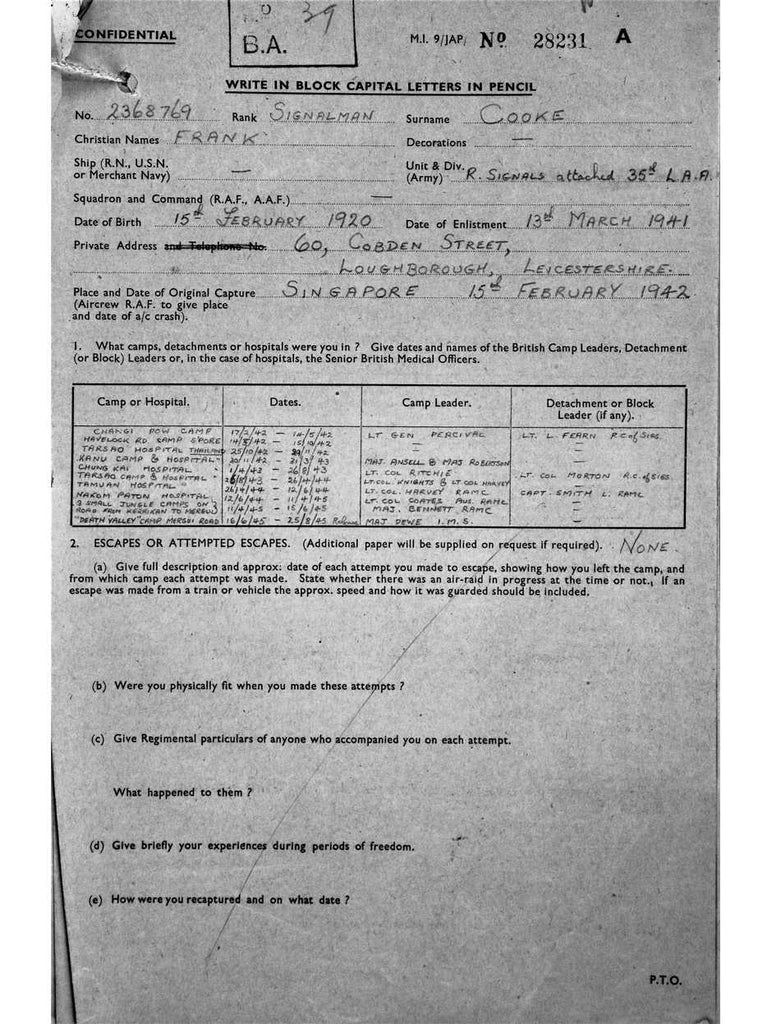 CONFIDENTIAL
39
B.A.
M.I. 9/JAP/ No 28231 A
WRITE IN BLOCK CAPITAL LETTERS IN PENCIL
No. 2368769 Rank SIGNALMAN Surname COOKE
Christian Names FRANK Decorations —
Ship (R.N., U.S.N. or Merchant Navy) — Unit & Div. (Army) R. SIGNALS attached 35th L.A.A.
Squadron and Command (R.A.F., A.A.F.) —
Date of Birth 15th FEBRUARY 1920 Date of Enlistment 13th MARCH 1941
Private Address and Telephone No. 60, COBDEN STREET,
LOUGHBOROUGH, LEICESTERSHIRE.
Place and Date of Original Capture SINGAPORE 15th FEBRUARY 1942
(Aircrew R.A.F. to give place
and date of a/c crash).
1. What camps, detachments or hospitals were you in ? Give dates and names of the British Camp Leaders, Detachment
(or Block) Leaders or, in the case of hospitals, the Senior British Medical Officers.
Camp or Hospital. Dates. Camp Leader. Detachment or Block Leader (if any).
CHANGI POW CAMP 17/2/42 – 14/5/42 LT GEN PERCIVAL LT. L. FEARN R.C of SIGS.
HAVELOCK RD CAMP S'PORE 14/5/42 – 15/10/42 — —
TARSAO HOSPITAL THAILAND 25/10/42 – 20/11/42 — —
KANU CAMP & HOSPITAL " 20/11/42 – 21/3/43 MAJ. ANSELL & MAJ ROBERTSON —
CHUNG KAI HOSPITAL " 1/4/43 – 26/8/43 LT. COL RITCHIE —
TARSAO CAMP & HOSPITAL " 26/8/43 – 26/4/44 LT. COL KNIGHTS & LT COL HARVEY LT COL MORTON R.C of SIGS.
TAMUAN HOSPITAL " 26/4/44 – 12/6/44 LT. COL. HARVEY RAMC —
NAKOM PATON HOSPITAL 12/6/44 – 11/4/45 LT COL COATES AUS. RAMC CAPT. SMITH L. RAMC
3 SMALL JUNGLE CAMPS ON ROAD FROM KERRIKAN TO MERGUI 11/4/45 – 15/6/45 MAJ. BENNETT RAMC —
"DEATH VALLEY" CAMP MERGUI ROAD 16/6/45 – 25/8/45 Release MAJ DEWE I.M.S. —
2. ESCAPES OR ATTEMPTED ESCAPES. (Additional paper will be supplied on request if required). NONE.
(a) Give full description and approx: date of each attempt you made to escape, showing how you left the camp, and
from which camp each attempt was made. State whether there was an air-raid in progress at the time or not. If an
escape was made from a train or vehicle the approx. speed and how it was guarded should be included.
(b) Were you physically fit when you made these attempts ?
(c) Give Regimental particulars of anyone who accompanied you on each attempt.
What happened to them ?
(d) Give briefly your experiences during periods of freedom.
(e) How were you recaptured and on what date ?
P.T.O.